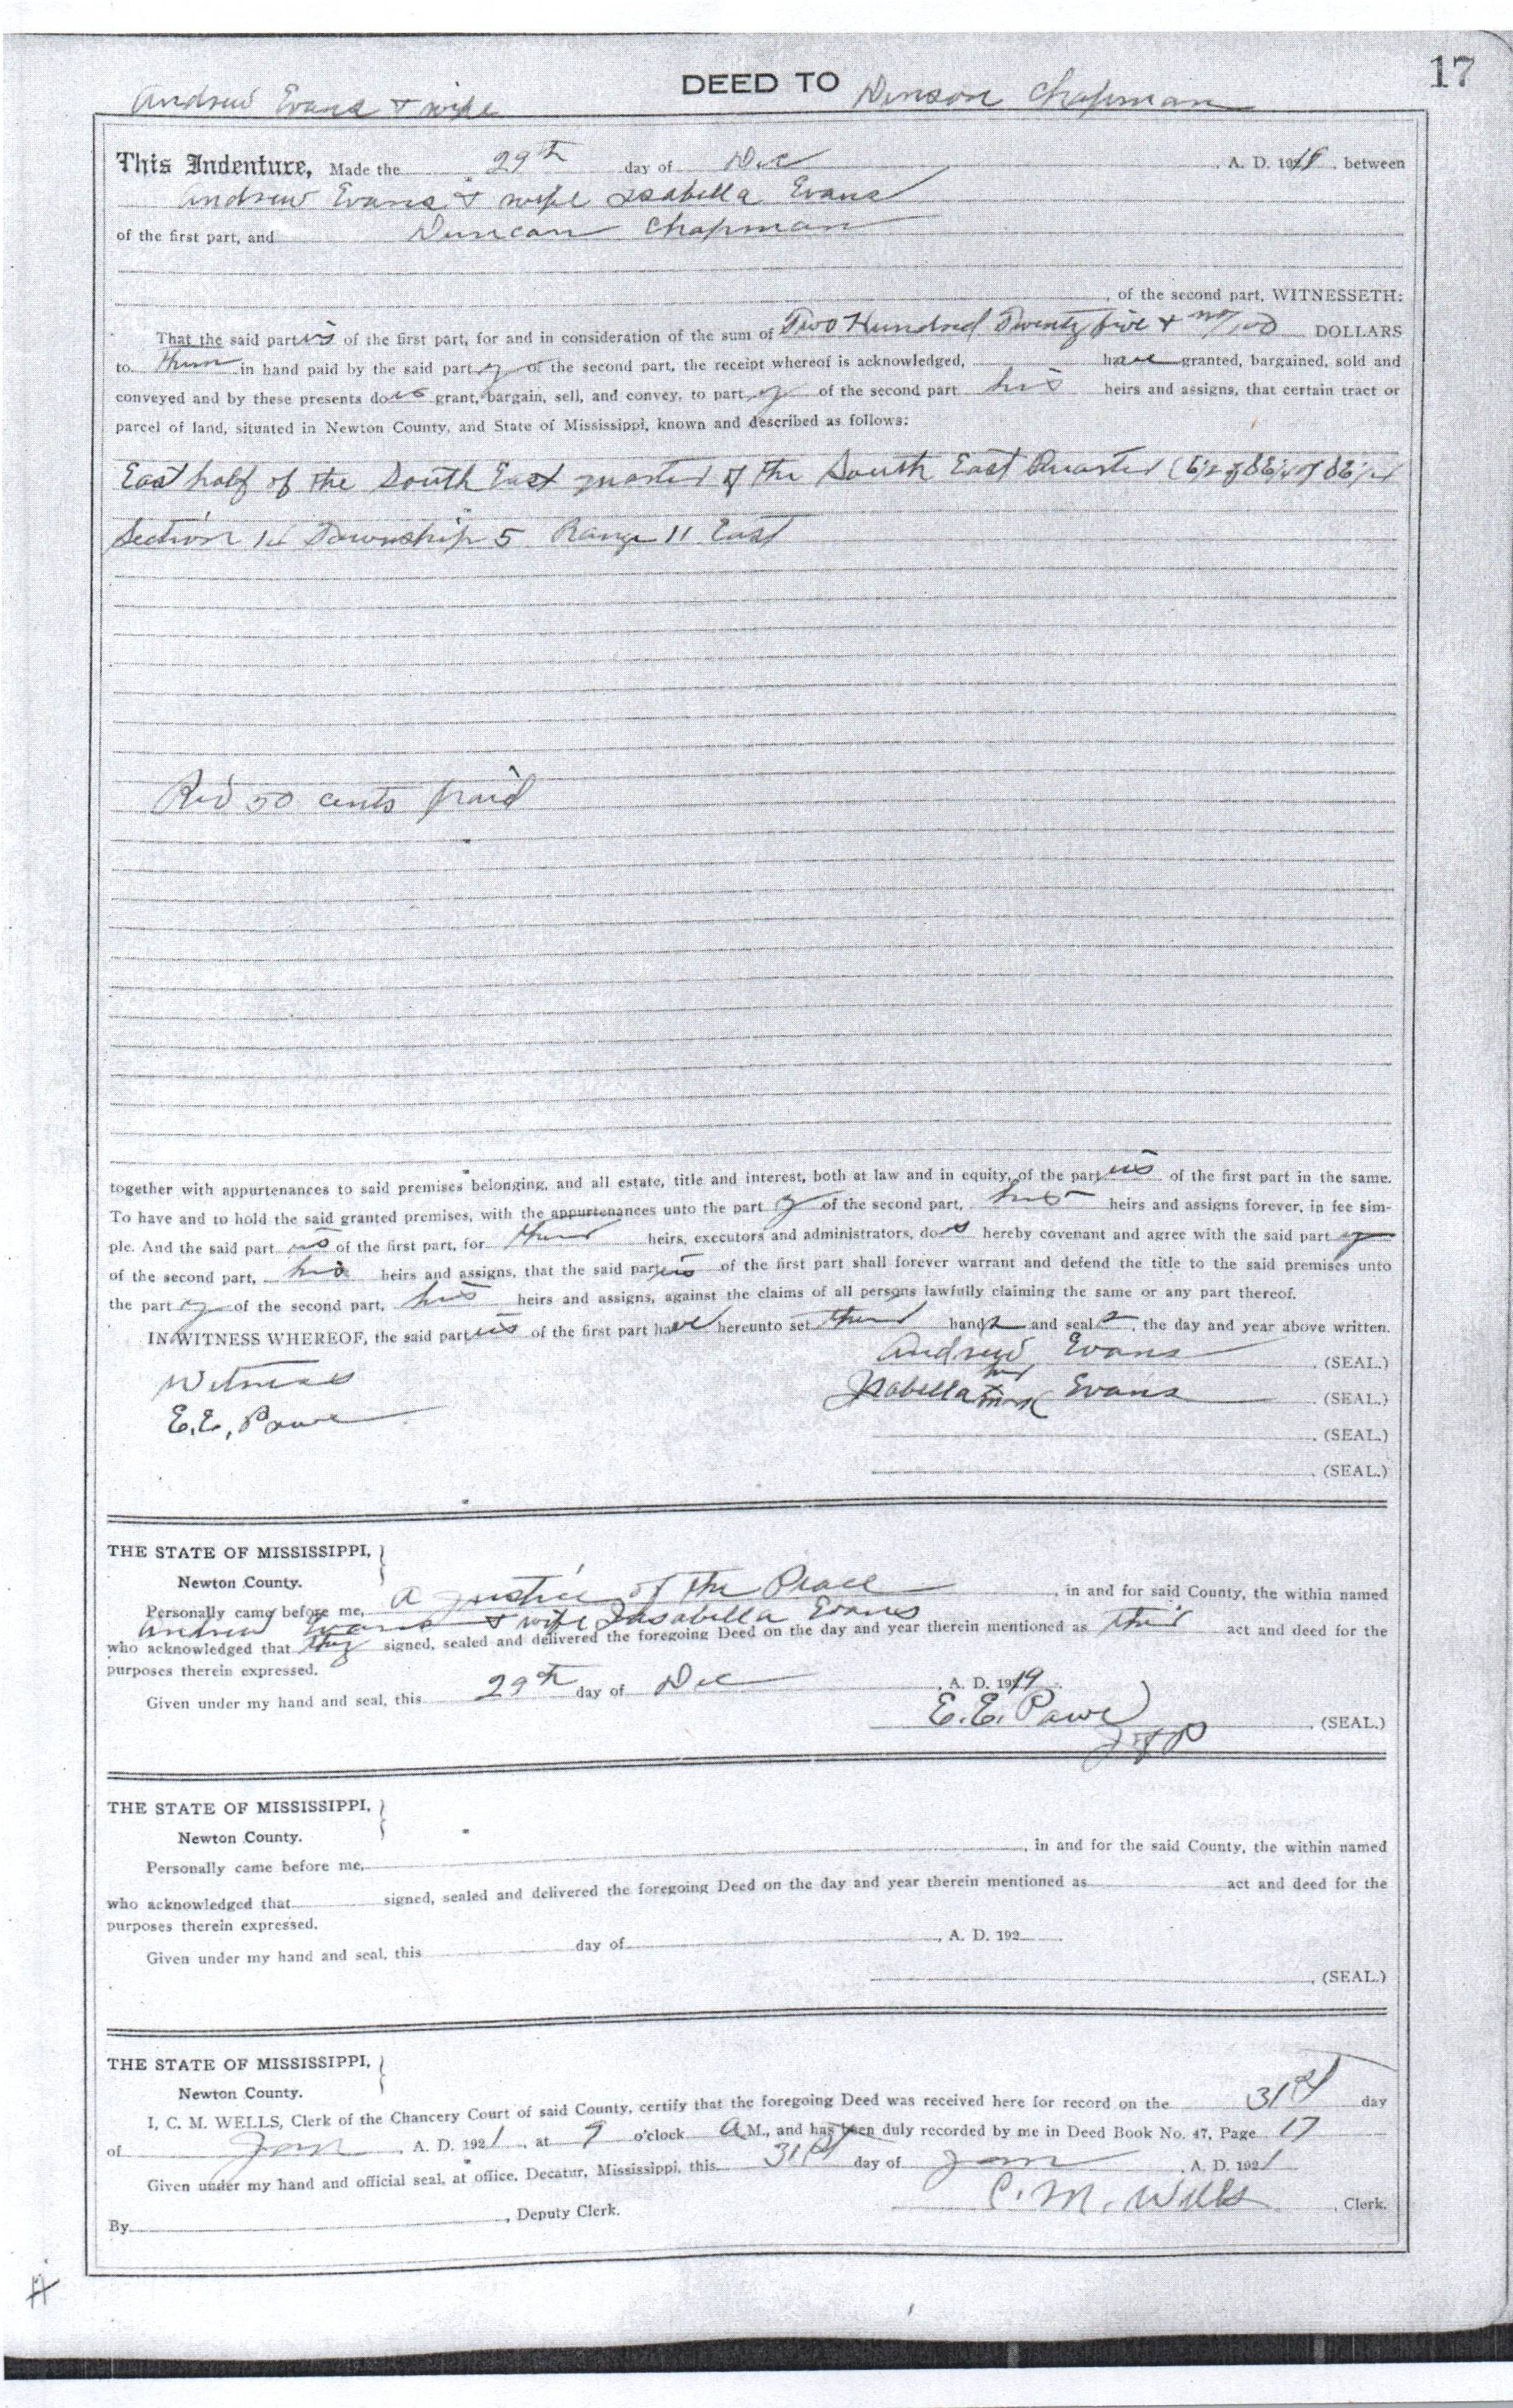 17
Andrew Evans & wife DEED TO Denson Chapman
This Indenture, Made the 29th day of Dec A. D. 1919 between
Andrew Evans & wife Isabella Evans
of the first part, and Duncan Chapman
, of the second part, WITNESSETH:
That the said parties of the first part, for and in consideration of the sum of Two Hundred Twenty five & no/100 DOLLARS
to them in hand paid by the said party of the second part, the receipt whereof is acknowledged, have granted, bargained, sold and
conveyed and by these presents does grant, bargain, sell, and convey, to party of the second part his heirs and assigns, that certain tract or
parcel of land, situated in Newton County, and State of Mississippi, known and described as follows:
East half of the South East quarter of the South East Quarter (E 1/2 of SE 1/4 of SE 1/4
Section 14 Township 5 Range 11 East
Rev 50 cents paid
together with appurtenances to said premises belonging, and all estate, title and interest, both at law and in equity, of the parties of the first part in the same.
To have and to hold the said granted premises, with the appurtenances unto the party of the second part, his heirs and assigns forever, in fee sim-
ple. And the said parties of the first part, for their heirs, executors and administrators, does hereby covenant and agree with the said party
of the second part, his heirs and assigns, that the said parties of the first part shall forever warrant and defend the title to the said premises unto
the party of the second part, his heirs and assigns, against the claims of all persons lawfully claiming the same or any part thereof.
IN WITNESS WHEREOF, the said parties of the first part have hereunto set their hands and seals, the day and year above written.
Andrew Evans (SEAL.)
Witness
Isabella her x mark Evans (SEAL.)
E. E. Pawe
(SEAL.)
(SEAL.)
THE STATE OF MISSISSIPPI,
Newton County.
Personally came before me, A Justice of the Peace, in and for said County, the within named
Andrew Evans & wife Isabella Evans
who acknowledged that they signed, sealed and delivered the foregoing Deed on the day and year therein mentioned as their act and deed for the
purposes therein expressed.
Given under my hand and seal, this 29th day of Dec, A. D. 1919
E. E. Pawe (SEAL.)
J of P
THE STATE OF MISSISSIPPI,
Newton County.
Personally came before me, , in and for the said County, the within named
who acknowledged that signed, sealed and delivered the foregoing Deed on the day and year therein mentioned as act and deed for the
purposes therein expressed.
Given under my hand and seal, this day of , A. D. 192
, (SEAL.)
THE STATE OF MISSISSIPPI,
Newton County.
I, C. M. WELLS, Clerk of the Chancery Court of said County, certify that the foregoing Deed was received here for record on the 31st day
of Jan, A. D. 1921, at 9 o'clock A M., and has been duly recorded by me in Deed Book No. 47, Page 17
Given under my hand and official seal, at office, Decatur, Mississippi, this 31st day of Jan, A. D. 1921
C. M. Wells, Clerk.
By , Deputy Clerk.